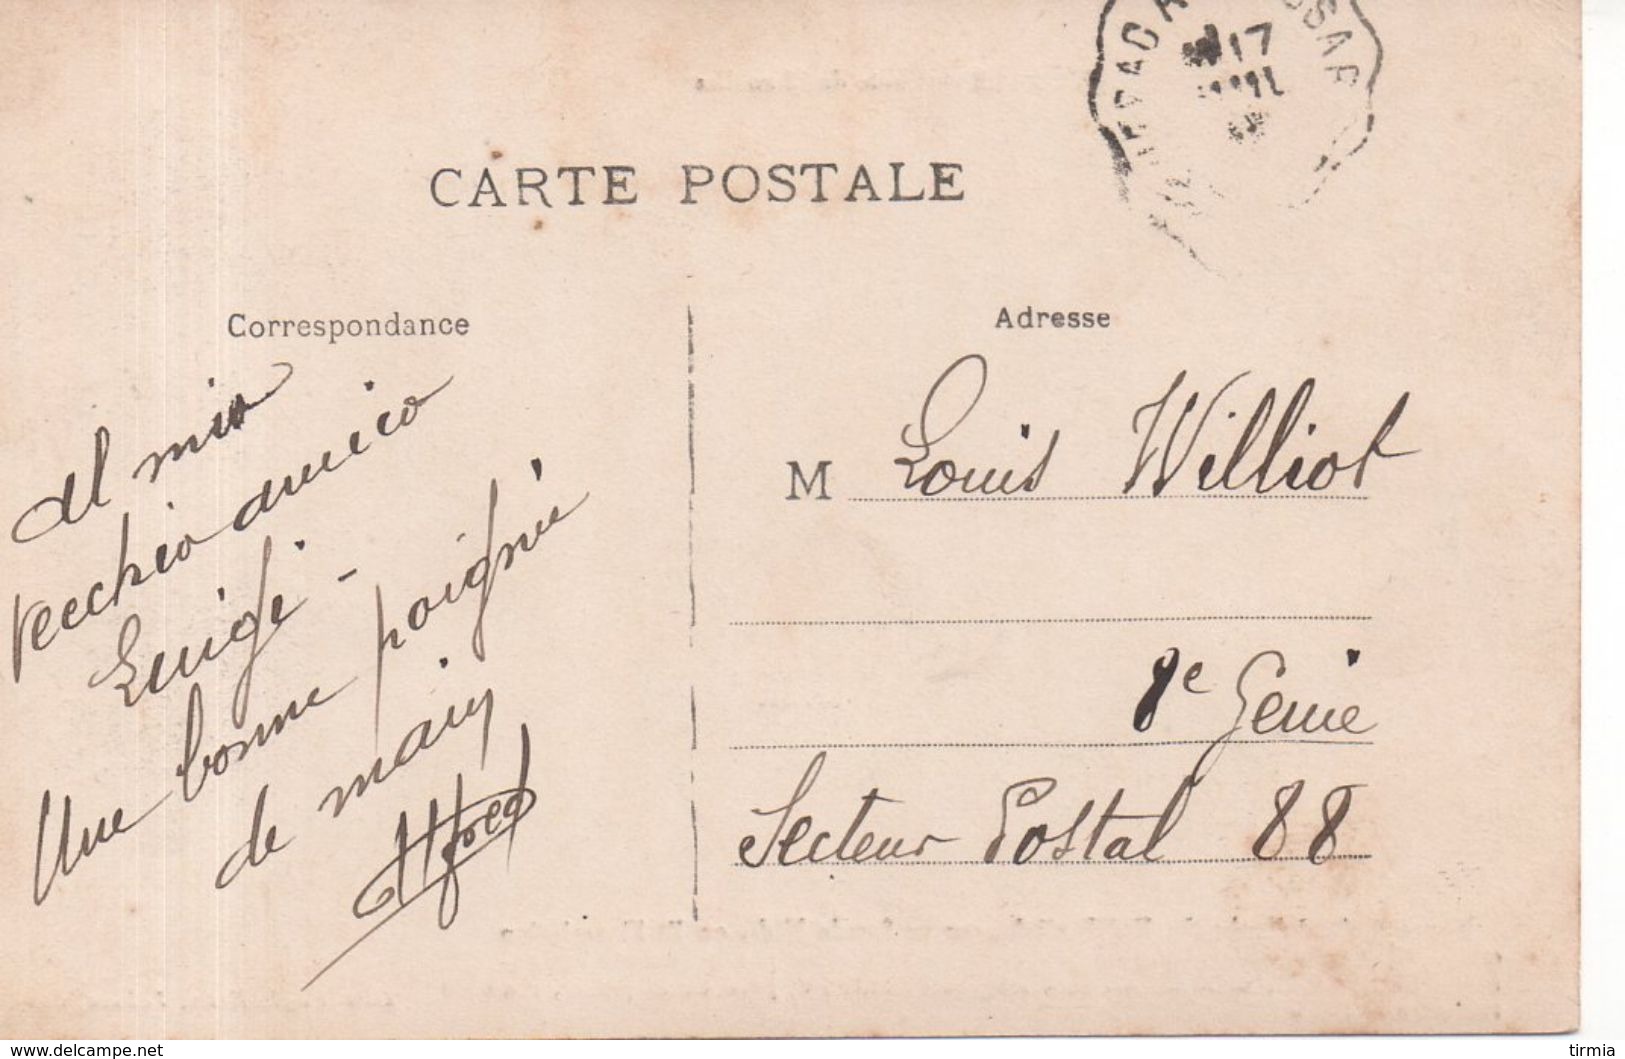 CARTE POSTALE
Correspondance
Al mio
vecchio amico
Luigi -
Une bonne poignée
de main
Alfred
Adresse
M Louis Williot
8e Génie
Secteur Postal 88
17
www.delcampe.net
tirmia